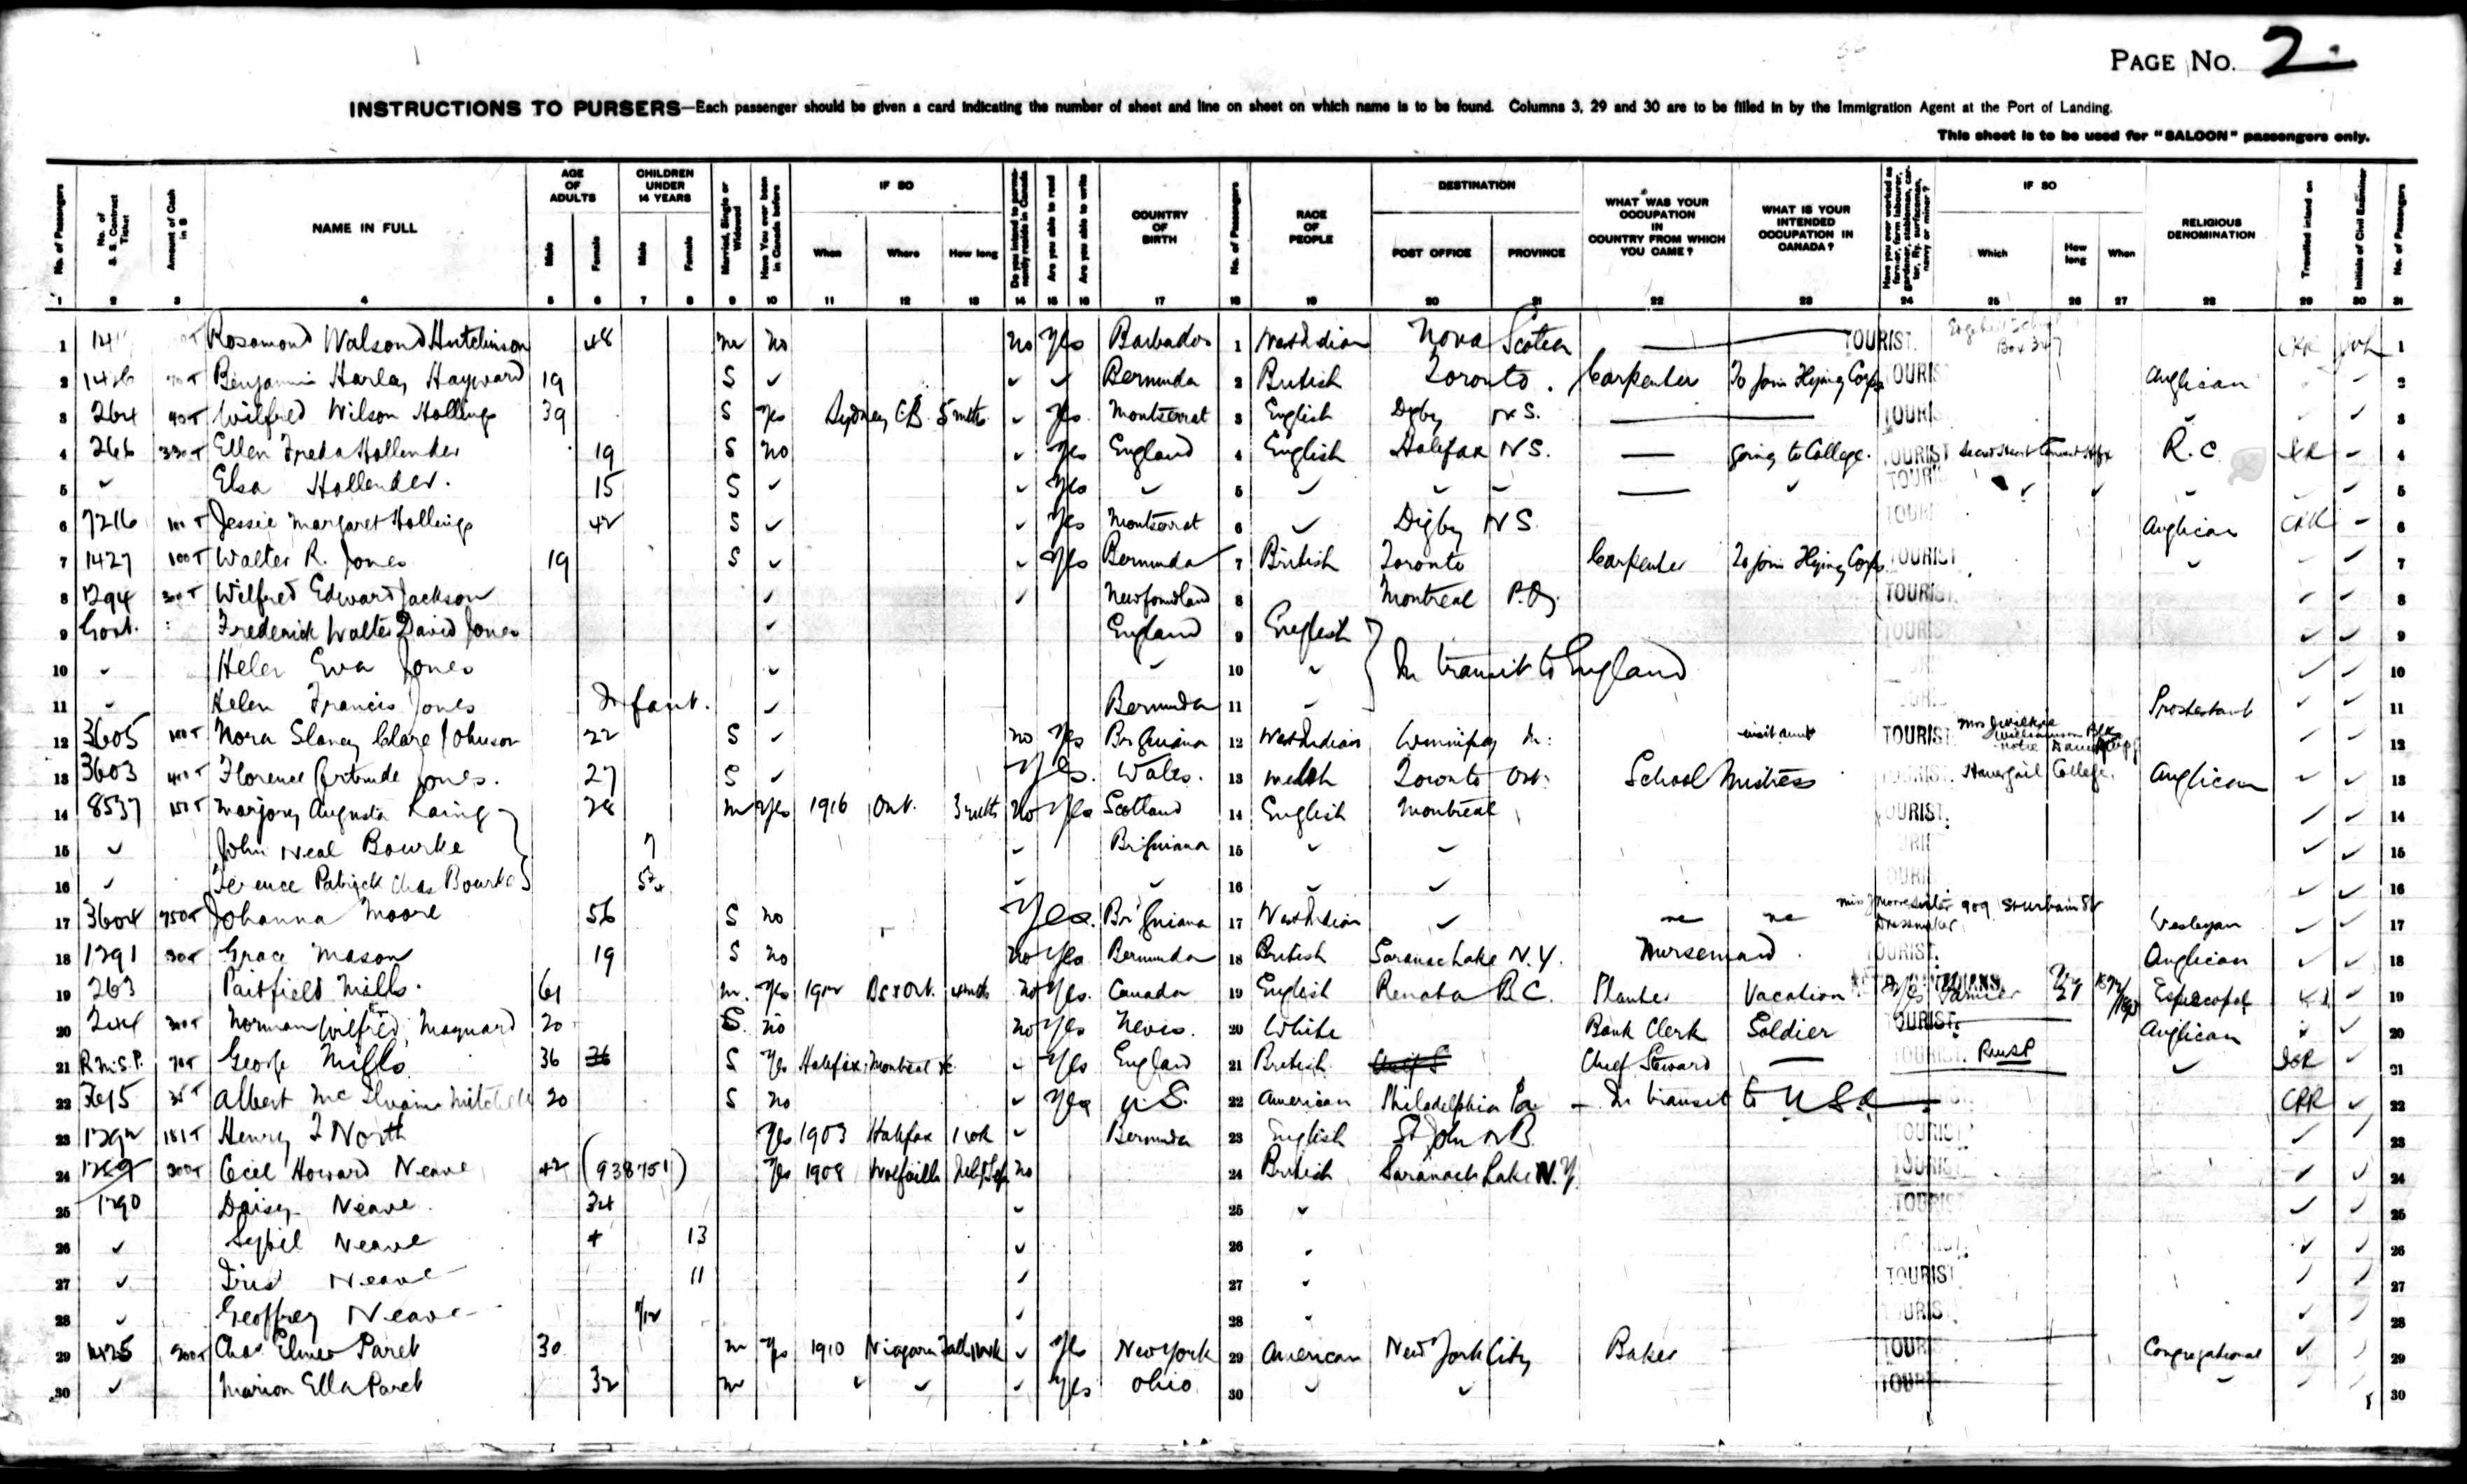 PAGE NO. 2
INSTRUCTIONS TO PURSERS—Each passenger should be given a card indicating the number of sheet and line on sheet on which name is to be found. Columns 3, 29 and 30 are to be filled in by the Immigration Agent at the Port of Landing.
This sheet is to be used for "SALOON" passengers only.
No. of Passengers No. of S. S. Contract Ticket Amount of Cash in $ NAME IN FULL AGE OF ADULTS Male Female CHILDREN UNDER 14 YEARS Male Female Married, Single or Widowed Have You ever been in Canada before IF SO When Where How long Do you intend to permanently reside in Canada Are you able to read Are you able to write COUNTRY OF BIRTH No. of Passengers RACE OF PEOPLE DESTINATION POST OFFICE PROVINCE WHAT WAS YOUR OCCUPATION IN COUNTRY FROM WHICH YOU CAME? WHAT IS YOUR INTENDED OCCUPATION IN CANADA? Have you ever worked as farmer, farm labourer, gardener, stableman, carter, Ry. surfaceman, navvy or miner? IF SO Which How long When RELIGIOUS DENOMINATION Travelled inland on Initials of Civil Examiner No. of Passengers
1 2 3 4 5 6 7 8 9 10 11 12 13 14 15 16 17 18 19 20 21 22 23 24 25 26 27 28 29 30 31
1 Rosamond Walsond Hutchinson 48 m no no yes Barbados 1 West Indian Nova Scotia TOURIST. 1
2 1426 Benjamin Harley Hayward 19 S Bermuda 2 British Toronto. Carpenter To join Flying Corps Anglican 2
3 264 Wilfred Wilson Hollings 39 S Yes Sydney C.B. 5 mths Yes. Montserrat 3 English Digby N.S. 3
4 266 Ellen Freda Hollender 19 S no Yes England 4 English Halifax N.S. going to College. TOURIST Sacred Heart Convent Hfx R.C 4
5 Elsa Hollender. 15 S Yes 5 5
6 7216 Jessie Margaret Hollings 42 S Yes Montserrat 6 Digby N.S. Anglican 6
7 1427 100T Walter R. Jones 19 S Yes Bermuda 7 British Toronto Carpenter To join Flying Corps. TOURIST 7
8 1294 Wilfred Edward Jackson Newfoundland 8 Montreal P.Q. TOURIST 8
9 Govt. Frederick Walter David Jones England 9 English In transit to England 9
10 Helen Eva Jones 10 10
11 Helen Francis Jones Infant. Bermuda 11 Protestant 11
12 3605 Nora Slaney Clare Johnson 22 S no Yes Br Guiana 12 West Indian Winnipeg M: visit aunt TOURIST. 12
13 3603 Florence Gertrude Jones. 27 S Yes. Wales. 13 Welsh Toronto Ont. School Mistress TOURIST. Havergail College. Anglican 13
14 8537 Marjory Augusta Laing 28 m Yes 1916 Ont. 3 mths No Yes Scotland 14 English Montreal TOURIST. 14
15 John Neal Bourke 7 Br Guiana 15 15
16 Terence Patrick Chas Bourke 16 16
17 3604 750T Johanna Moore 56 S no Yes. Br Guiana 17 West Indian 909 St Urbain St Wesleyan 17
18 1291 Grace Mason 19 S no No Yes. Bermuda 18 British Saranac Lake N.Y. Nursemaid. TOURIST. Anglican 18
19 263 Pairfield Mills. 61 m. Yes 1912 no Yes. Canada 19 English Renata B.C. Planter Vacation 19
20 244 Norman Wilfred Maynard 20 S. no no Yes Nevis. 20 White Bank Clerk Soldier TOURIST. Anglican 20
21 R.M.S.P. George Mills. 36 36 S Yes Halifax Montreal Yes England 21 British Chief Steward TOURIST. RMSP 21
22 3615 Albert Mc Ilvaine Mitchell 20 S no Yes U.S. 22 American Philadelphia Pa In transit to U.S.A. CPR 22
23 1292 181T Henry T North Yes 1903 Halifax 1 wk Bermuda 23 English St John N.B. TOURIST 23
24 1289 Cecil Howard Neave 42 (938751) Yes 1908 no 24 British Saranach Lake N.Y. TOURIST 24
25 1290 Daisy Neave. 34 25 TOURIST 25
26 Sybil Neave 13 26 26
27 Iris Neave 11 27 TOURIST 27
28 Geoffrey Neave 28 TOURIST. 28
29 1425 Chas Elmer Paret 30 m Yes 1910 Niagara Falls 1 wk Yes New York 29 American New York City Baker TOURIST Congregational 29
30 Marion Ella Paret 32 m Yes Ohio 30 30